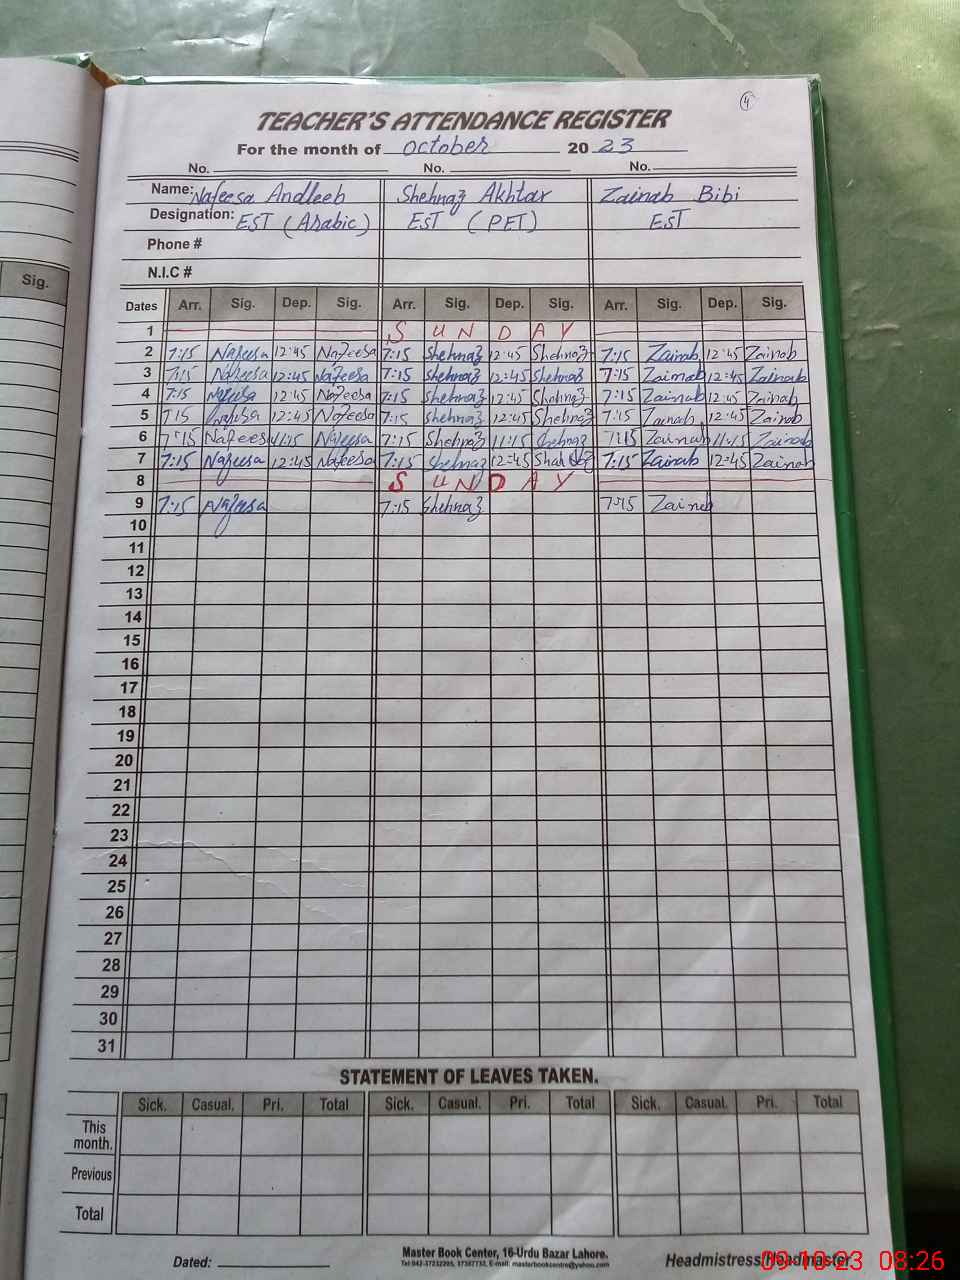 4
TEACHER'S ATTENDANCE REGISTER
For the month of October 20 23
No. No. No.
Name: Nafeesa Andleeb Shehnaz Akhtar Zainab Bibi
Designation: EST (Arabic) EST (PET) EST
Phone #
N.I.C #
Sig.
Dates Arr. Sig. Dep. Sig. Arr. Sig. Dep. Sig. Arr. Sig. Dep. Sig.
1 S U N D A Y
2 7:15 Nafeesa 12:45 Nafeesa 7:15 Shehnaz 12:45 Shehnaz 7:15 Zainab 12:45 Zainab
3 7:15 Nafeesa 12:45 Nafeesa 7:15 Shehnaz 12:45 Shehnaz 7:15 Zainab 12:45 Zainab
4 7:15 Nafeesa 12:45 Nafeesa 7:15 Shehnaz 12:45 Shehnaz 7:15 Zainab 12:45 Zainab
5 7:15 Nafeesa 12:45 Nafeesa 7:15 Shehnaz 12:45 Shehnaz 7:15 Zainab 12:45 Zainab
6 7:15 Nafeesa 11:15 Nafeesa 7:15 Shehnaz 11:15 Shehnaz 7:15 Zainab 11:15 Zainab
7 7:15 Nafeesa 12:45 Nafeesa 7:15 Shehnaz 12:45 7:15 Zainab 12:45 Zainab
8 S U N D A Y
9 7:15 Nafeesa 7:15 Shehnaz 7:15 Zainab
10
11
12
13
14
15
16
17
18
19
20
21
22
23
24
25
26
27
28
29
30
31
STATEMENT OF LEAVES TAKEN.
Sick. Casual. Pri. Total Sick. Casual. Pri. Total Sick. Casual. Pri. Total
This month.
Previous
Total
Dated: Master Book Center, 16-Urdu Bazar Lahore. Headmistress/Headmaster
Tel: 042-37232295, 37367732, E-mail: masterbookcentre@yahoo.com
09-10-23 08:26